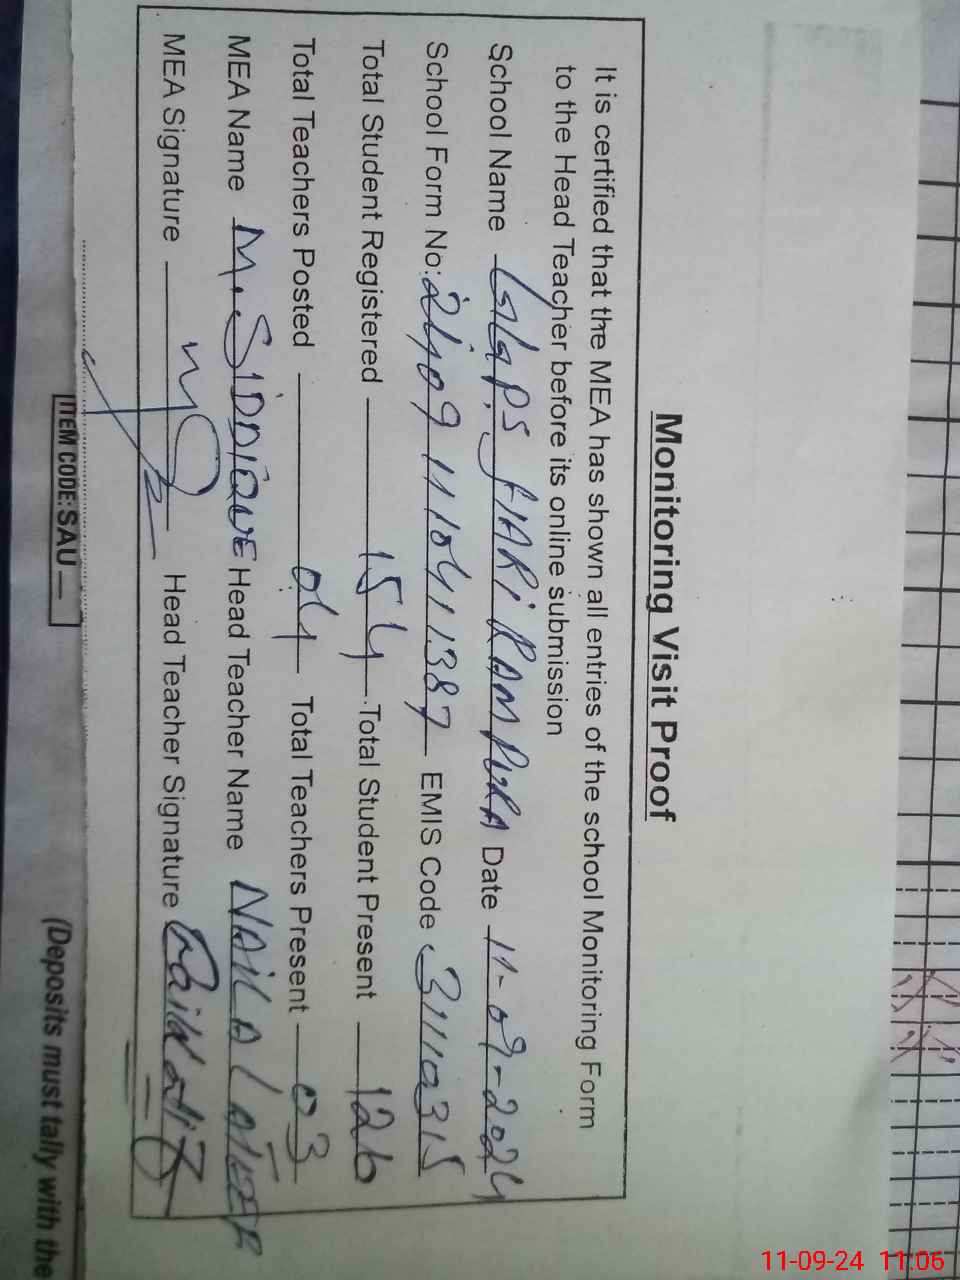 Monitoring Visit Proof
It is certified that the MEA has shown all entries of the school Monitoring Form
to the Head Teacher before its online submission
School Name GGPS HARi RAM PURA Date 11-09-2024
School Form No: 2409111041387 EMIS Code 31110315
Total Student Registered 154 Total Student Present 126
Total Teachers Posted 04 Total Teachers Present 03
MEA Name M. SIDDIQUE Head Teacher Name NAiLA LATEEF
MEA Signature Head Teacher Signature
ITEM CODE: SAU
(Deposits must tally with the
11-09-24 11:06